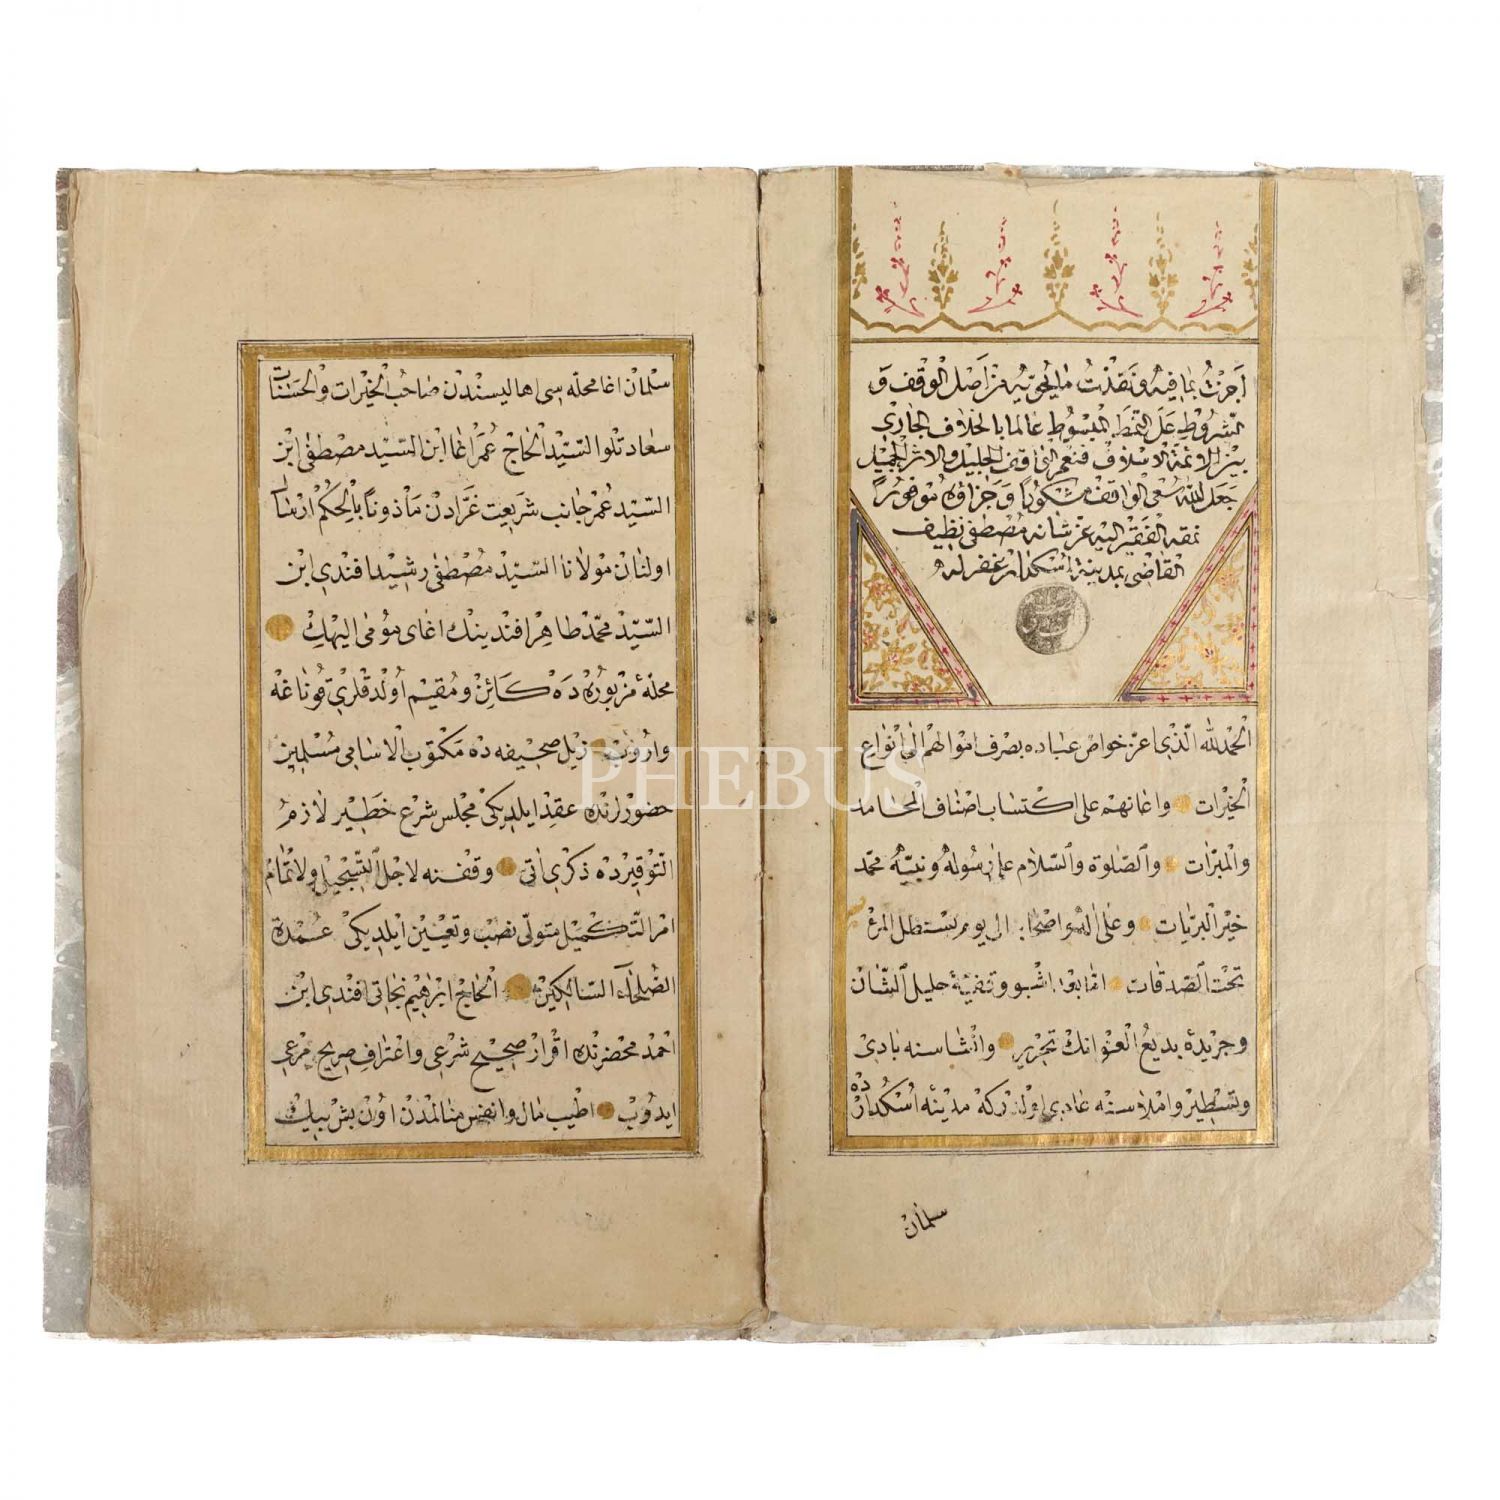 اجزت بما فيه ونفذت ما يحويه من اصل الوقف و
الشروط على النمط المبسوط عالما بالخلاف الجاري
بين الائمة الاسلاف فنعم الواقف الجليل والاثر الجميل
جعل الله سعى الواقف مشكورا وجزاؤه موفورا
نمقه الفقير اليه عز شانه مصطفى نظيف
القاضى بمدينة اسكدار غفر له
الحمد لله الذى اعز خواص عباده بصرف اموالهم الى انواع
الخيرات واعانهم على اكتساب اصناف المحامد
والمبرات والصلوة والسلام على رسوله ونبيه محمد
خير البريات وعلى اله واصحابه الى يوم يستظل المرء
تحت الصدقات اما بعد اشبو وثيقهٔ جليل الشان
وجريدهٔ بديع العنوانك تحرير وانشاسنه بادى
وتسطير واملاسنه عادى اولدركه مدينهٔ اسكدارده
سلمان
سلمان اغا محله سى اهاليسندن صاحب الخيرات والحسنات
سعادتلو السيد الحاج عمر اغا ابن السيد مصطفى ابن
السيد عمر جانب شريعت غرادن مأذونا بالحكم ارسال
اولنان مولانا السيد مصطفى رشيد افندى ابن
السيد محمد طاهر افندينك اغاى مومى اليهك
محلهٔ مزبوره ده كائن ومقيم اولدقلرى قوناغه
واروب ذيل صحيفه ده مكتوب الاسامى مسلمين
حضورلرنده عقد ايلديكى مجلس شرع خطير لازم
التوقيرده ذكرى اتى وقفنه لاجل التسجيل ولاتمام
امر التكميل متولى نصب وتعيين ايلديكى عمدة
الصلحاء السالكين الحاج ابراهيم نجاتى افندى ابن
احمد محضرنده اقرار صحيح شرعى واعتراف صريح مرعى
ايدوب اطيب مال وانفس منالمدن اون بش بيك
PHEBUS